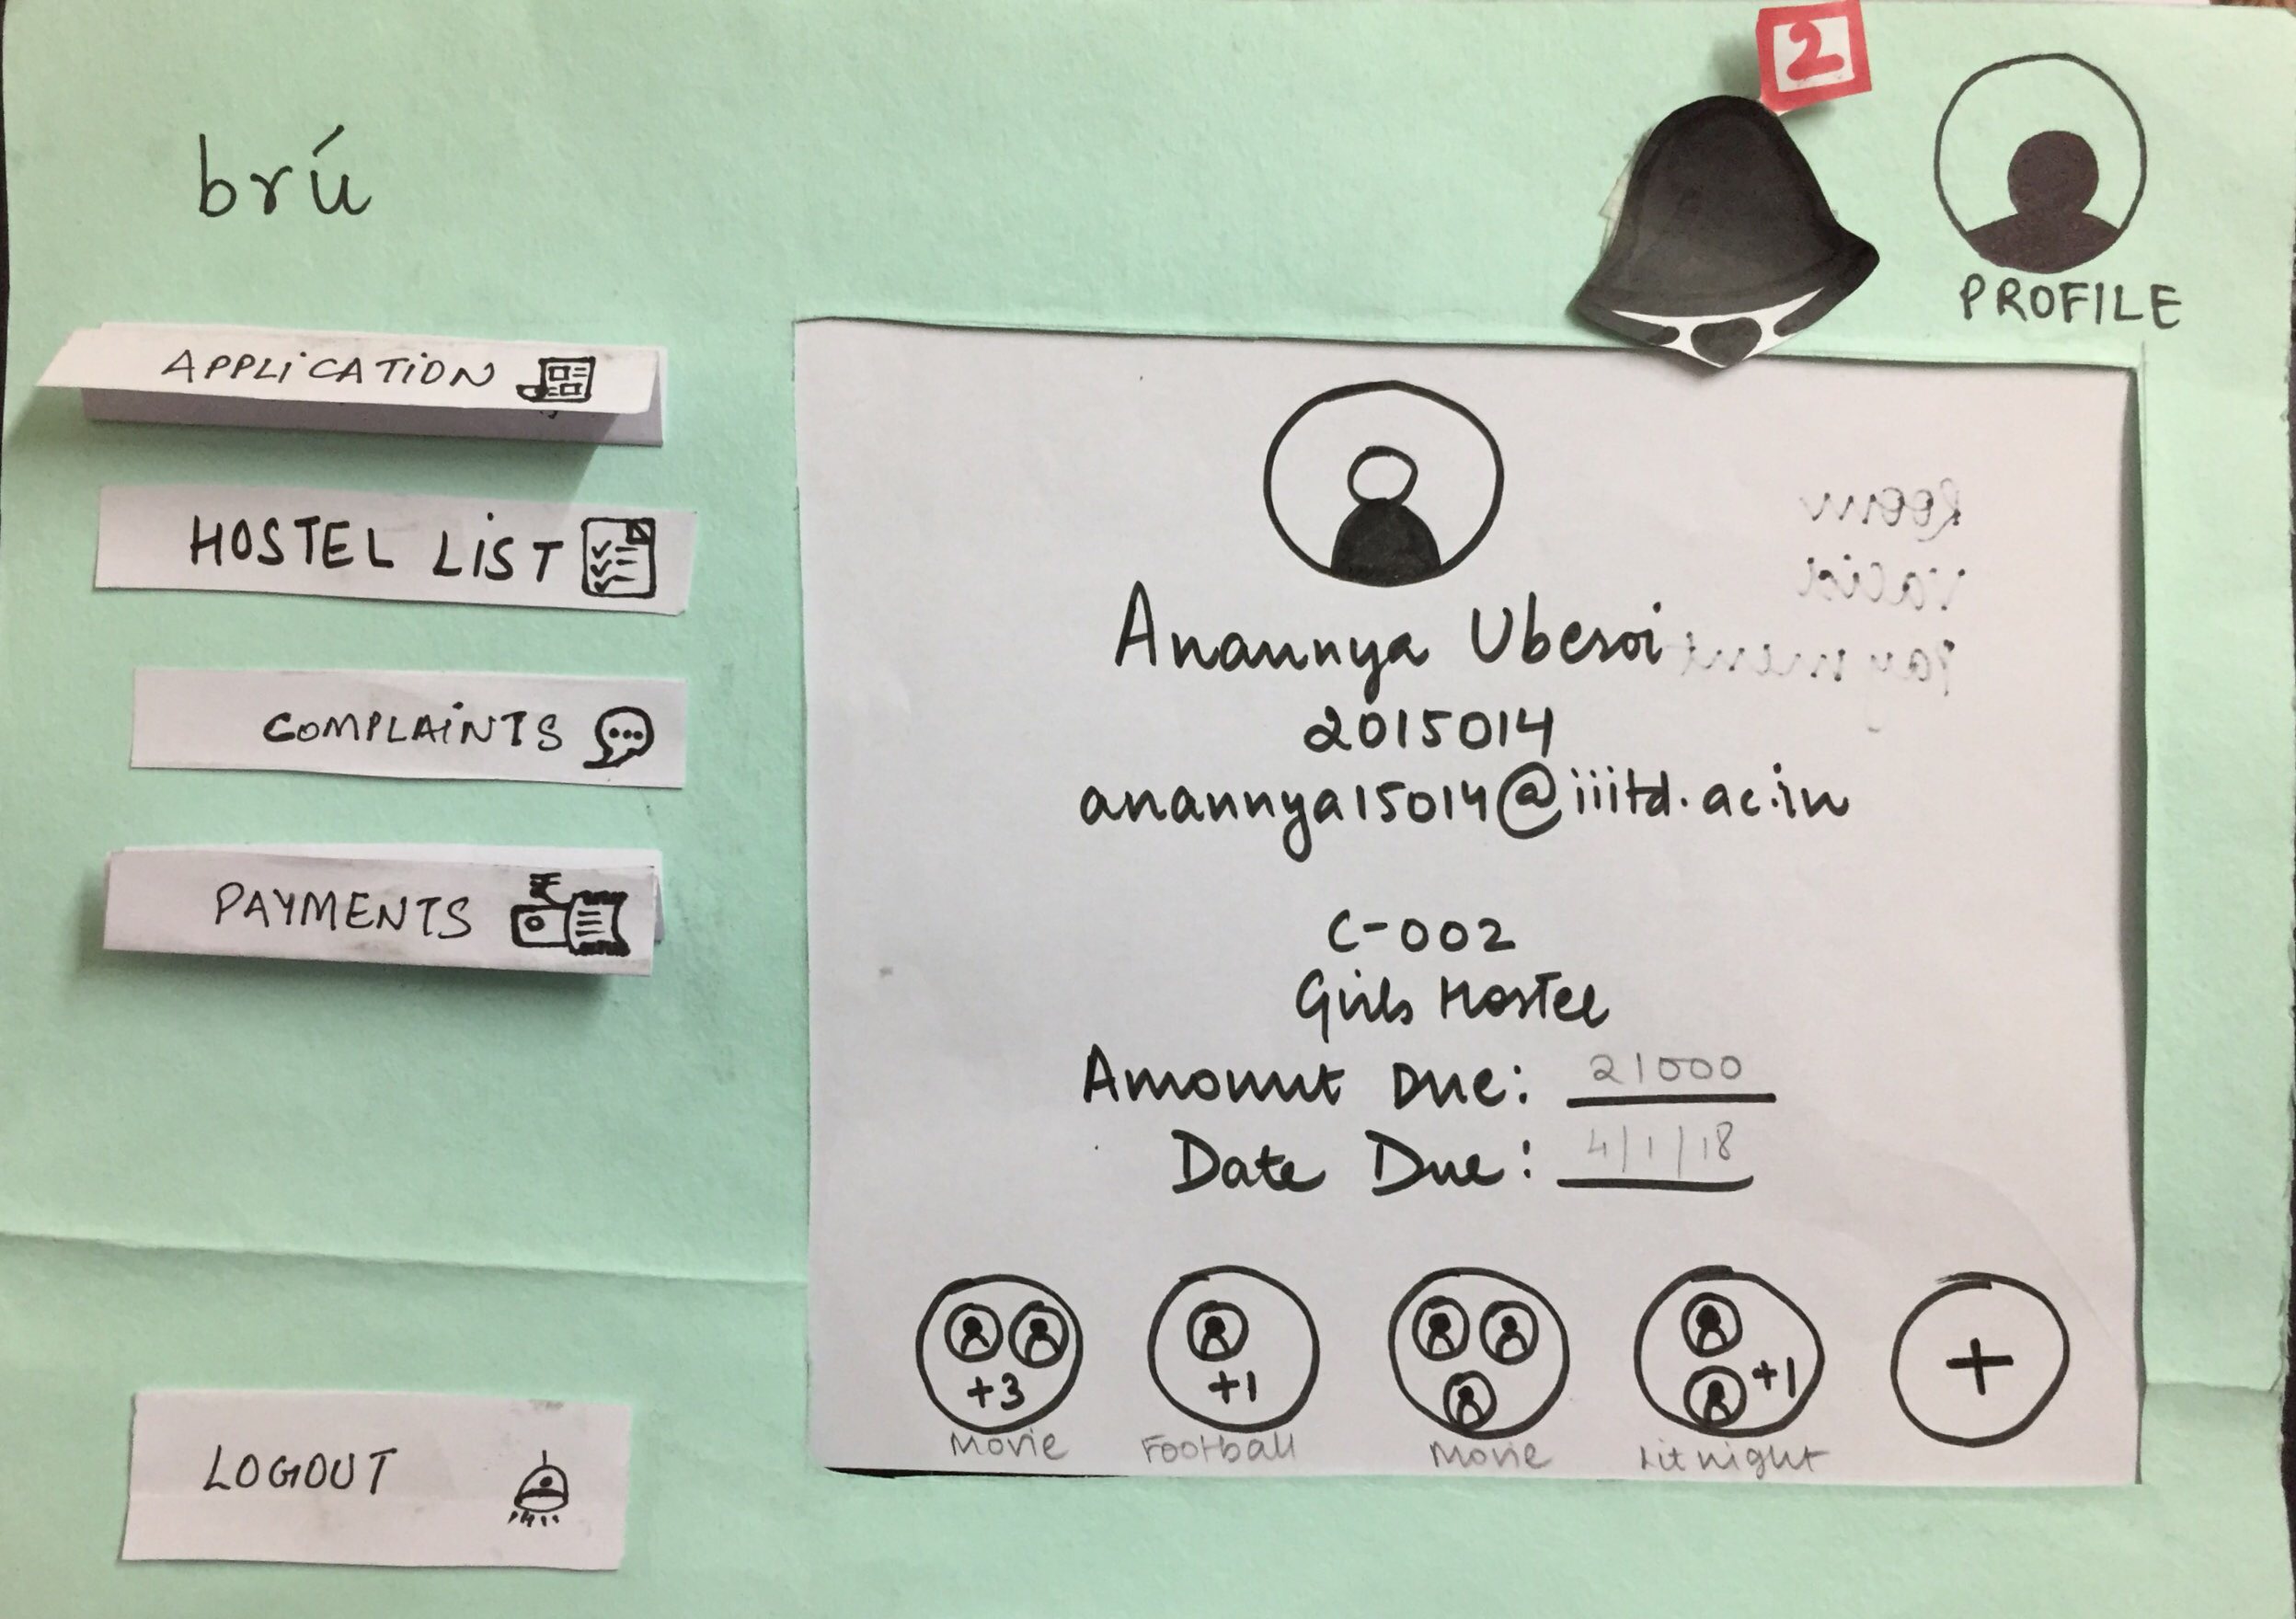 2
brú
PROFILE
APPLICATION
HOSTEL LIST
COMPLAINTS
PAYMENTS
LOGOUT
Room
Valid
Payment
Anannya Uberoi
2015014
anannya15014@iiitd.ac.in
C-002
Girls Hostel
Amount Due: 21000
Date Due: 4/1/18
+3
+1
+1
+
Movie
Football
Movie
Lit night